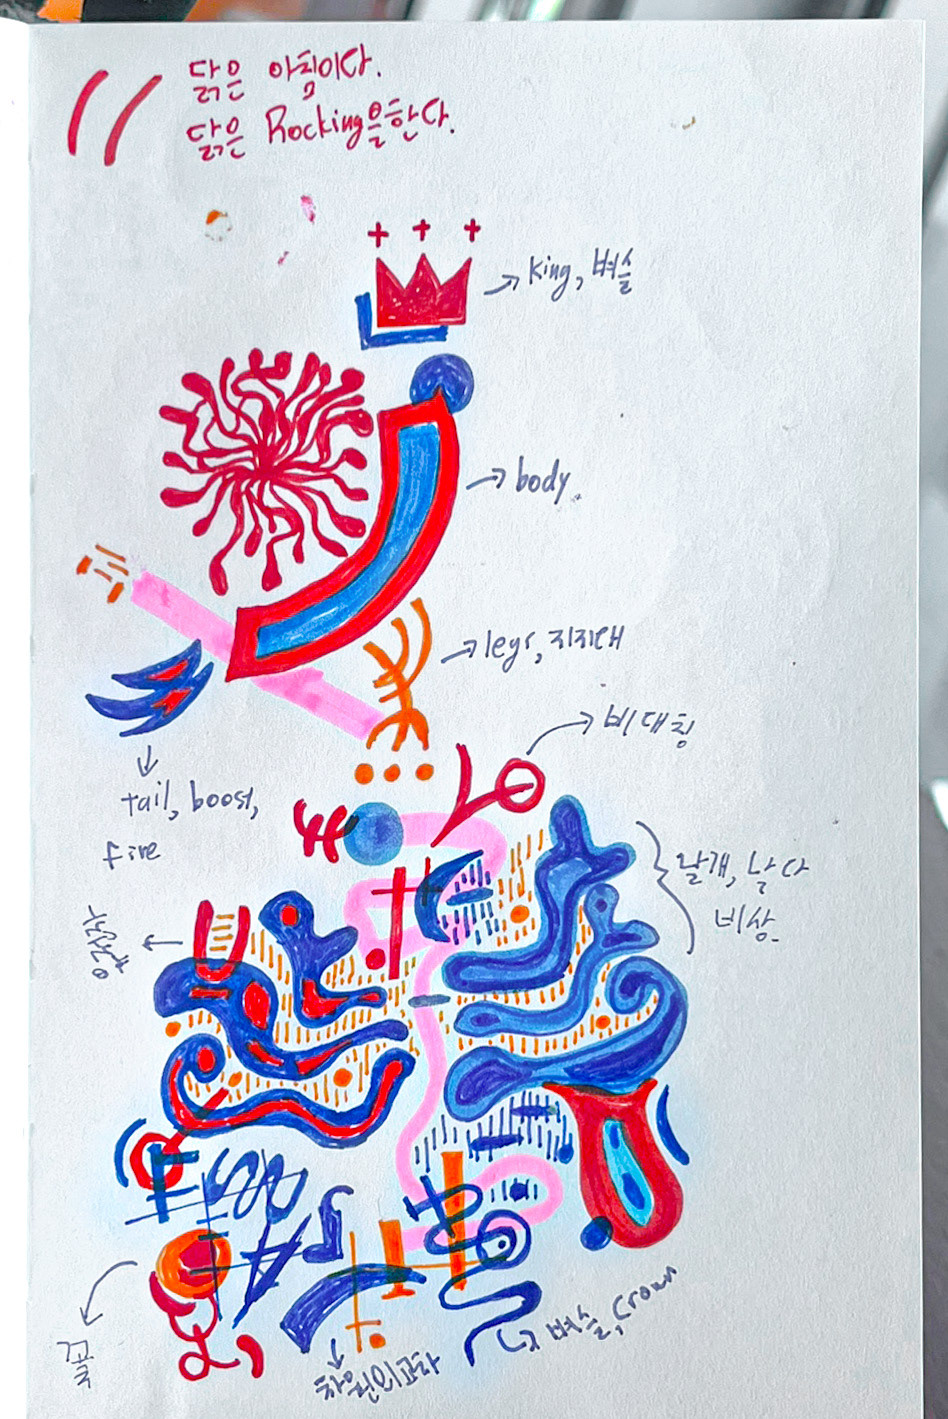 닭은 아침이다.
닭은 Rocking을한다.
king, 벼슬
body
legs, 지지대
비대칭
tail, boost,
fire
날개, 날다
비상.
차원의교차
벼슬, crown